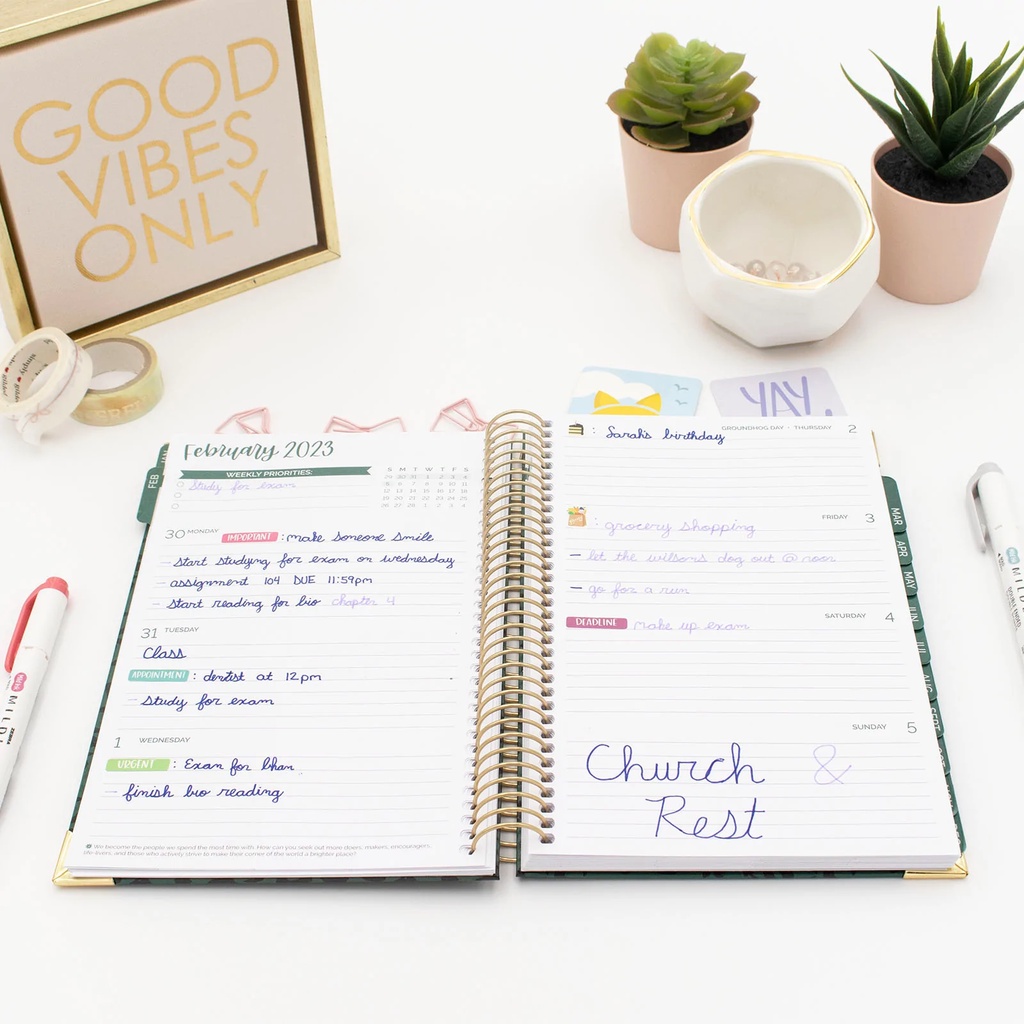 GOOD
VIBES
ONLY
simply
gilded
YAY,
FEB
February 2023
WEEKLY PRIORITIES:
study for exam
S M T W T F S
29 30 31 1 2 3 4
5 6 7 8 9 10 11
12 13 14 15 16 17 18
19 20 21 22 23 24 25
26 27 28 1 2 3 4
30 MONDAY
IMPORTANT : make someone smile
- start studying for exam on wednesday
- assignment 104 DUE 11:59pm
- start reading for bio chapter 4
31 TUESDAY
Class
APPOINTMENT : dentist at 12pm
- study for exam
1 WEDNESDAY
URGENT : Exam for
- finish bio reading
We become the people we spend the most time with. How can you seek out more doers, makers, encouragers,
life-livers, and those who actively strive to make their corner of the world a brighter place?
GROUNDHOG DAY · THURSDAY 2
: Sarah's birthday
FRIDAY 3
: grocery shopping
- let the wilsons dog out @ noon
- go for a run
SATURDAY 4
DEADLINE make up exam
SUNDAY 5
Church &
Rest
MAR
APR
MAY
JUN
JUL
AUG
SEPT
MILDL
MILDL